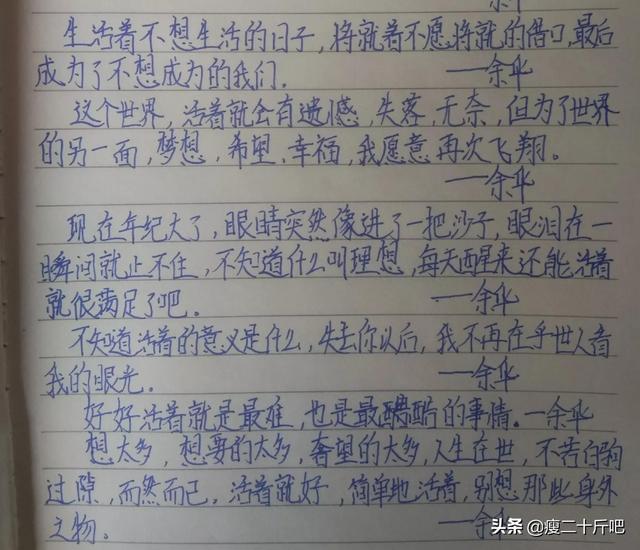 余华
生活着不想生活的日子，将就着不愿将就的借口，最后
成为了不想成为的我们。 ——余华
这个世界，活着就会有遗憾，失落，无奈，但为了世界
的另一面，梦想，希望，幸福，我愿意再次飞翔。
——余华
现在年纪大了，眼睛突然像进了一把沙子，眼泪在一
瞬间就止不住，不知道什么叫理想，每天醒来还能活着
就很满足了吧。 ——余华
不知道活着的意义是什么，失去你以后，我不再在乎世人看
我的眼光。 ——余华
好好活着就是最难，也是最酷的事情。——余华
想太多，想要的太多，奢望的太多，人生在世，不若白驹
过隙，而然而已，活着就好，简单地活着，别想那些身外
之物。 ——余华
头条 @瘦二十斤吧